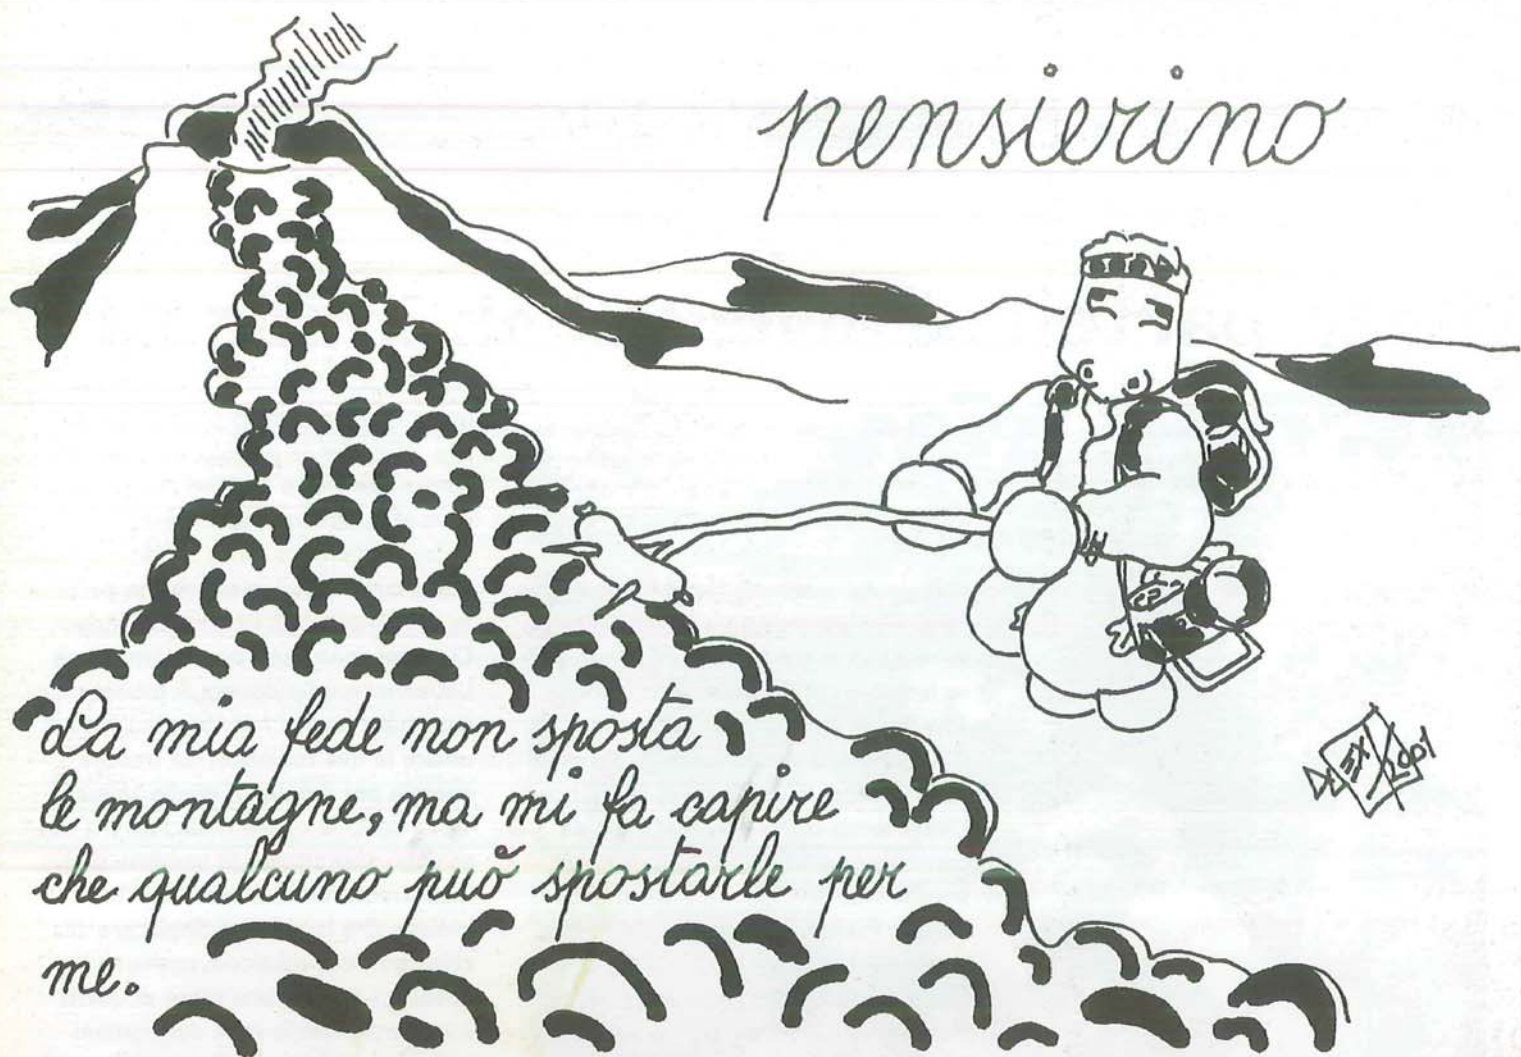 pensierino
La mia fede non sposta
le montagne, ma mi fa capire
che qualcuno può spostarle per
me.
2001